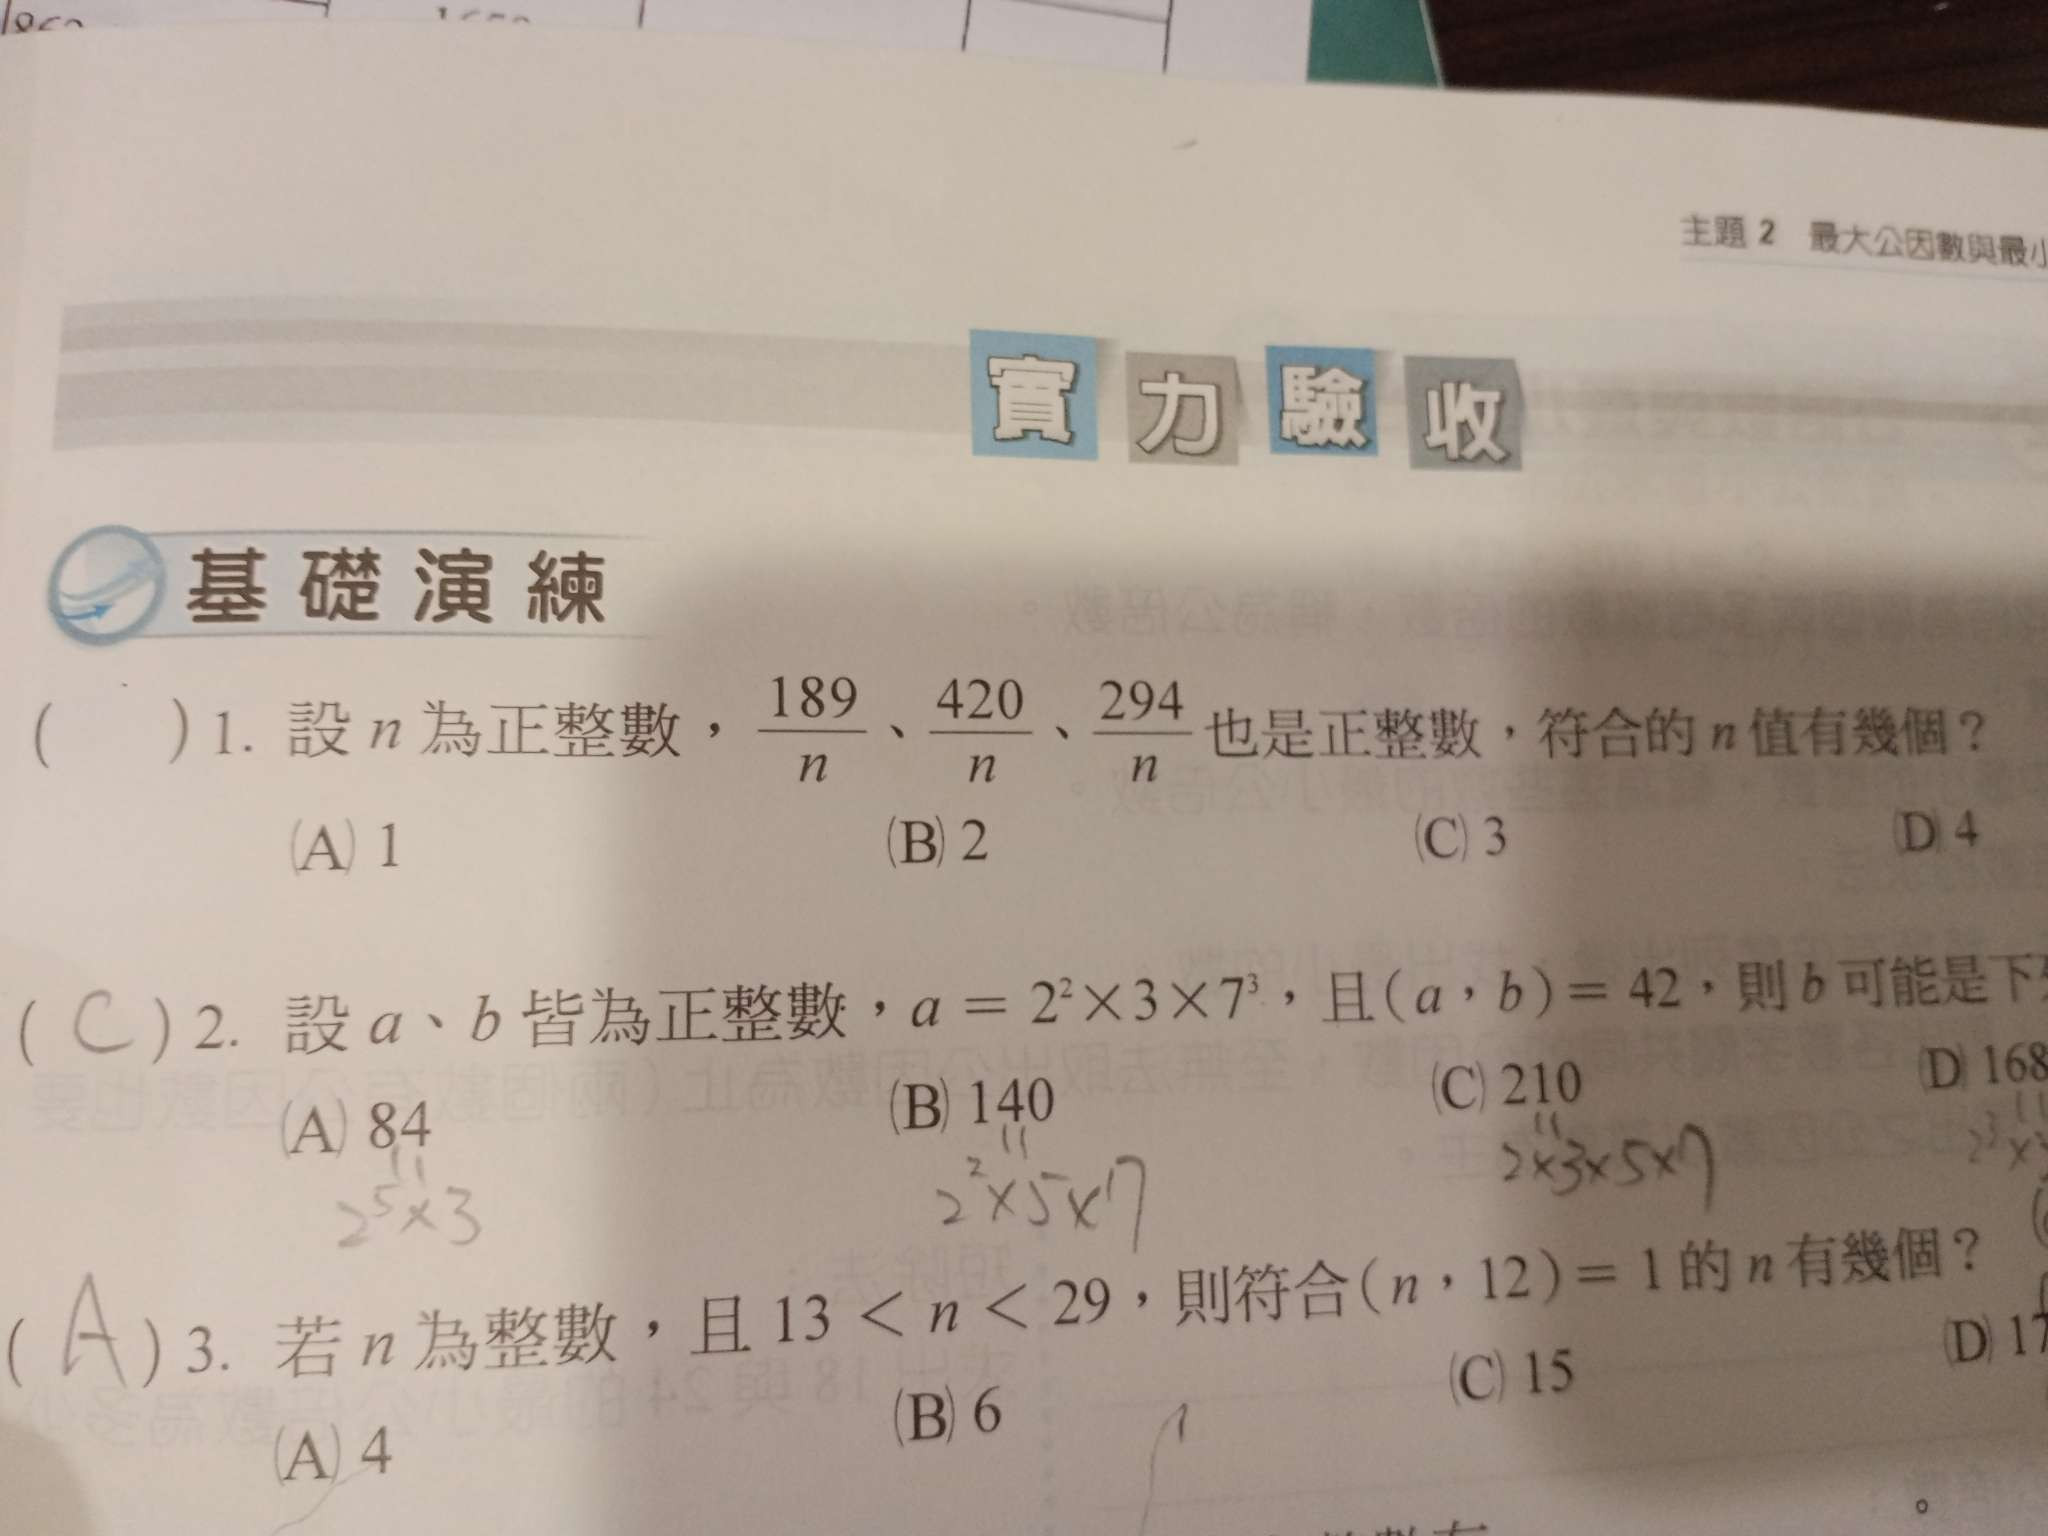 主題 2 最大公因數與最小
實力驗收
基礎演練
( ) 1. 設 n 為正整數，189/n、420/n、294/n 也是正整數，符合的 n 值有幾個？
(A) 1 (B) 2 (C) 3 (D) 4
( C ) 2. 設 a、b 皆為正整數，a = 2²×3×7³，且(a，b) = 42，則 b 可能是下
(A) 84 (B) 140 (C) 210 (D) 168
2⁵×3 2²×5×7 2×3×5×7 2³×3
( A ) 3. 若 n 為整數，且 13 < n < 29，則符合(n，12) = 1 的 n 有幾個？
(A) 4 (B) 6 (C) 15 (D) 17